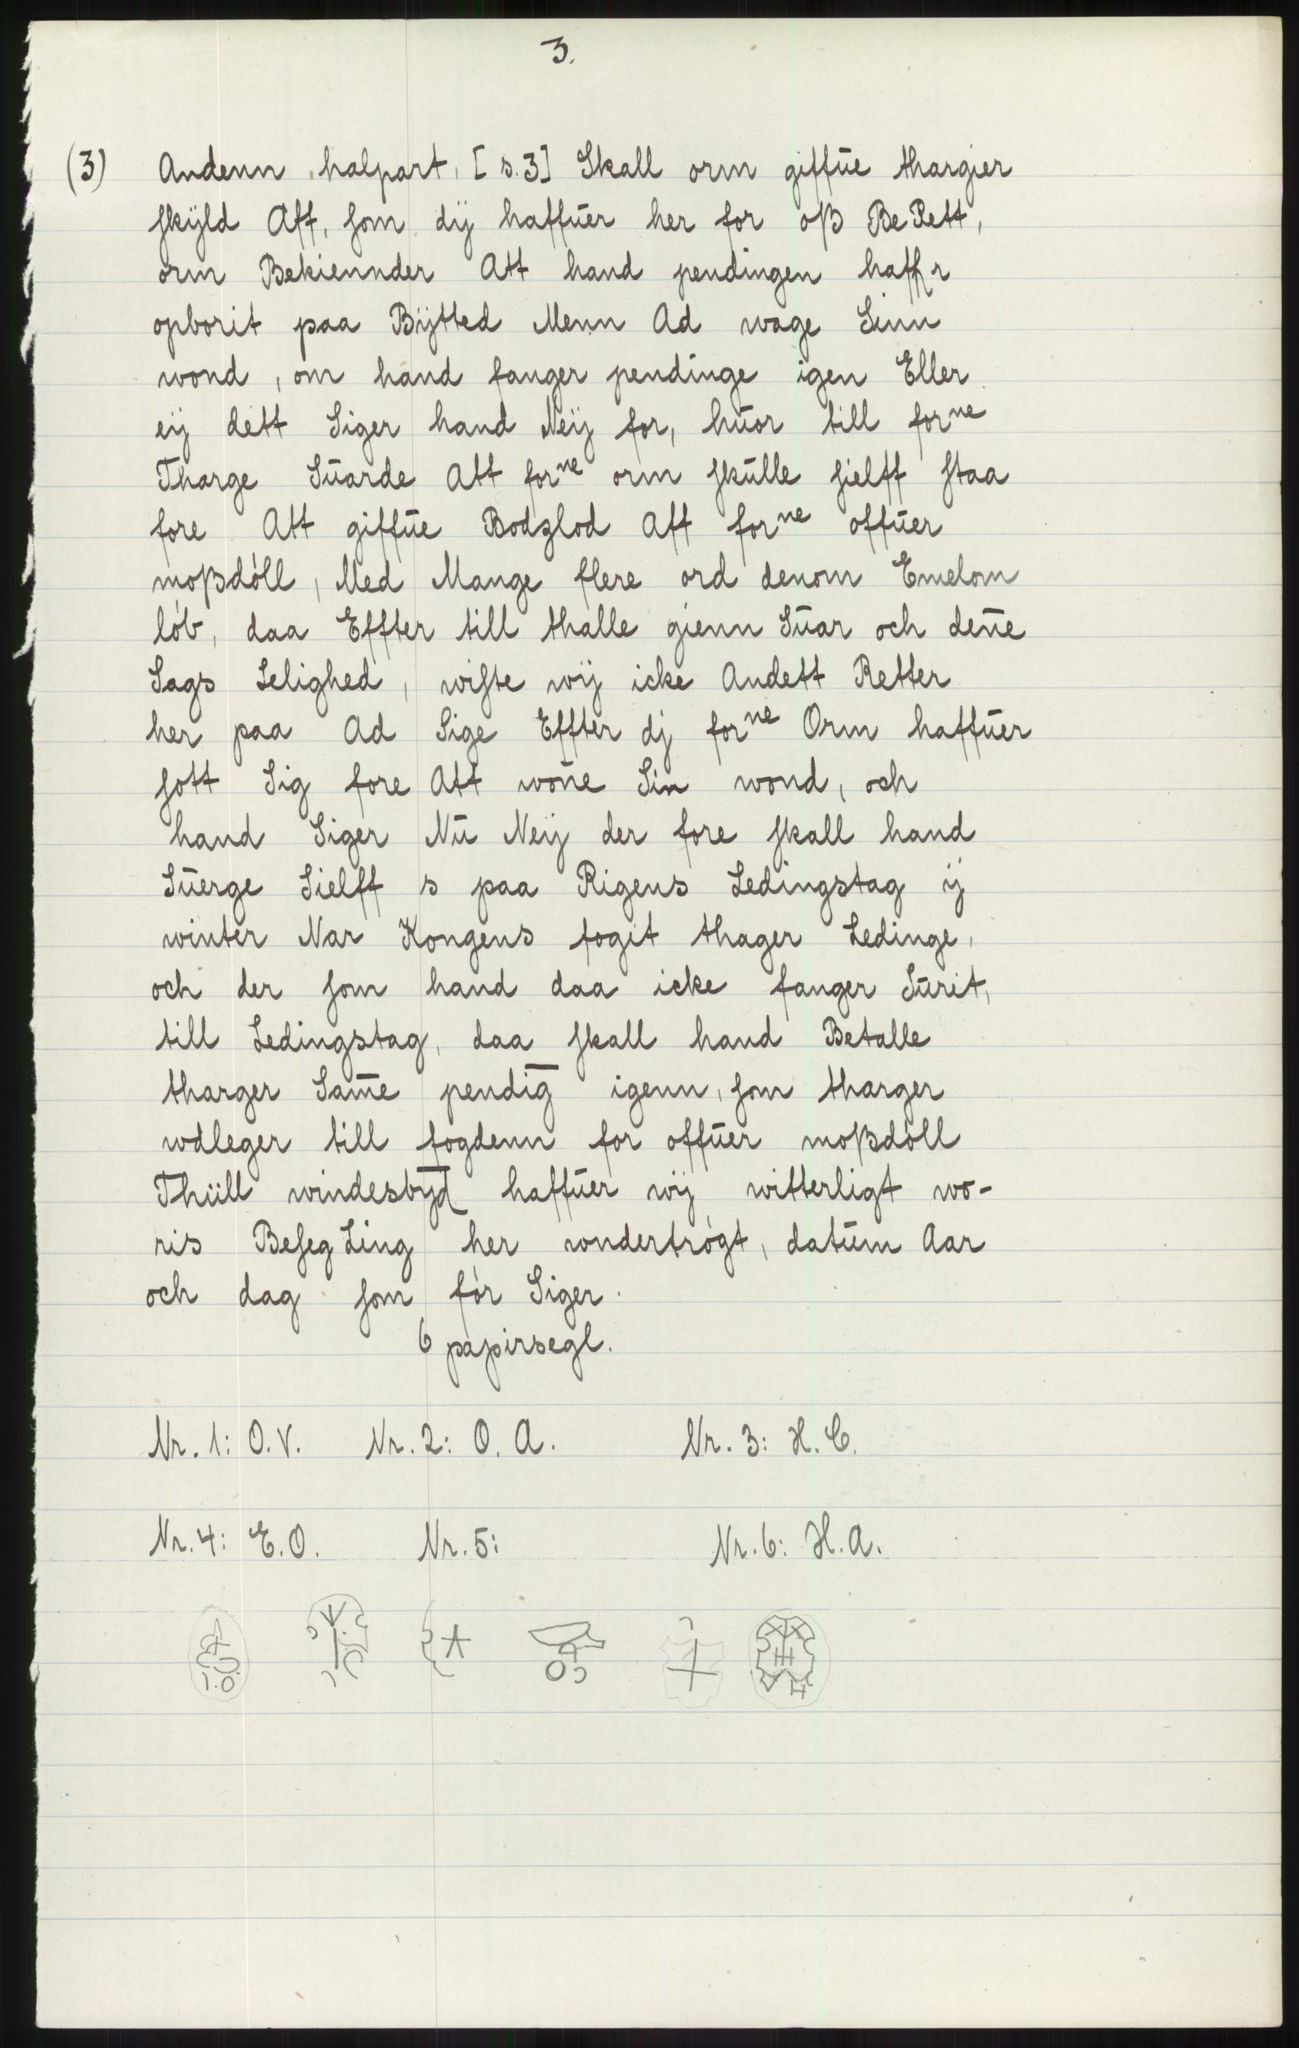 3.
(3) Andenn halpart, [s.3] Skall orm giffŭe thargier
skÿld Aff, som dÿ haffŭer her for oß Be Rett,
orm Bekiennder Att hand pendingen haffr
opborit paa Bÿtted Menn Ad wage Sinn
wond, om hand fanger pendinge igen Eller
eÿ dett Siger hand Neÿ for, hŭor till forne
Tharge Sŭarde Att forne orm skŭlle sielff staa
fore Att giffŭe Bodzlod Aff forne offŭer
moßdóll, Med Mange flere ord denom Emelom
lób, daa Effter till thalle gienn Sŭar och deñe
Sags Lelighed, wiste wÿ icke Andett Retter
her paa Ad Sige Effter dj forne Orm haffŭer
sott Sig fore Att woñe Sin wond, och
hand Siger Nŭ Neÿ der fore skall hand
Sŭerge Sielff s paa Rigens Ledingstag ÿ
winter Nar Kongens fogit thager Ledinge,
och der som hand daa icke fanger Sŭrit,
till Ledingstag, daa skall hand Betalle
tharger Sam̄e pendig̅ igenn, som tharger
wdleger till fogdenn for offŭer moßdóll
Thiill windesbyd̅ haffŭer wÿ witterligt wo-
ris Beseg Ling her wndertrógt, datŭm Aar
och dag som fór Siger.
6 papirsegl.
Nr. 1: O.V. Nr. 2: O. A. Nr. 3: H. C.
Nr. 4: E.O. Nr. 5: Nr. 6: H.A.